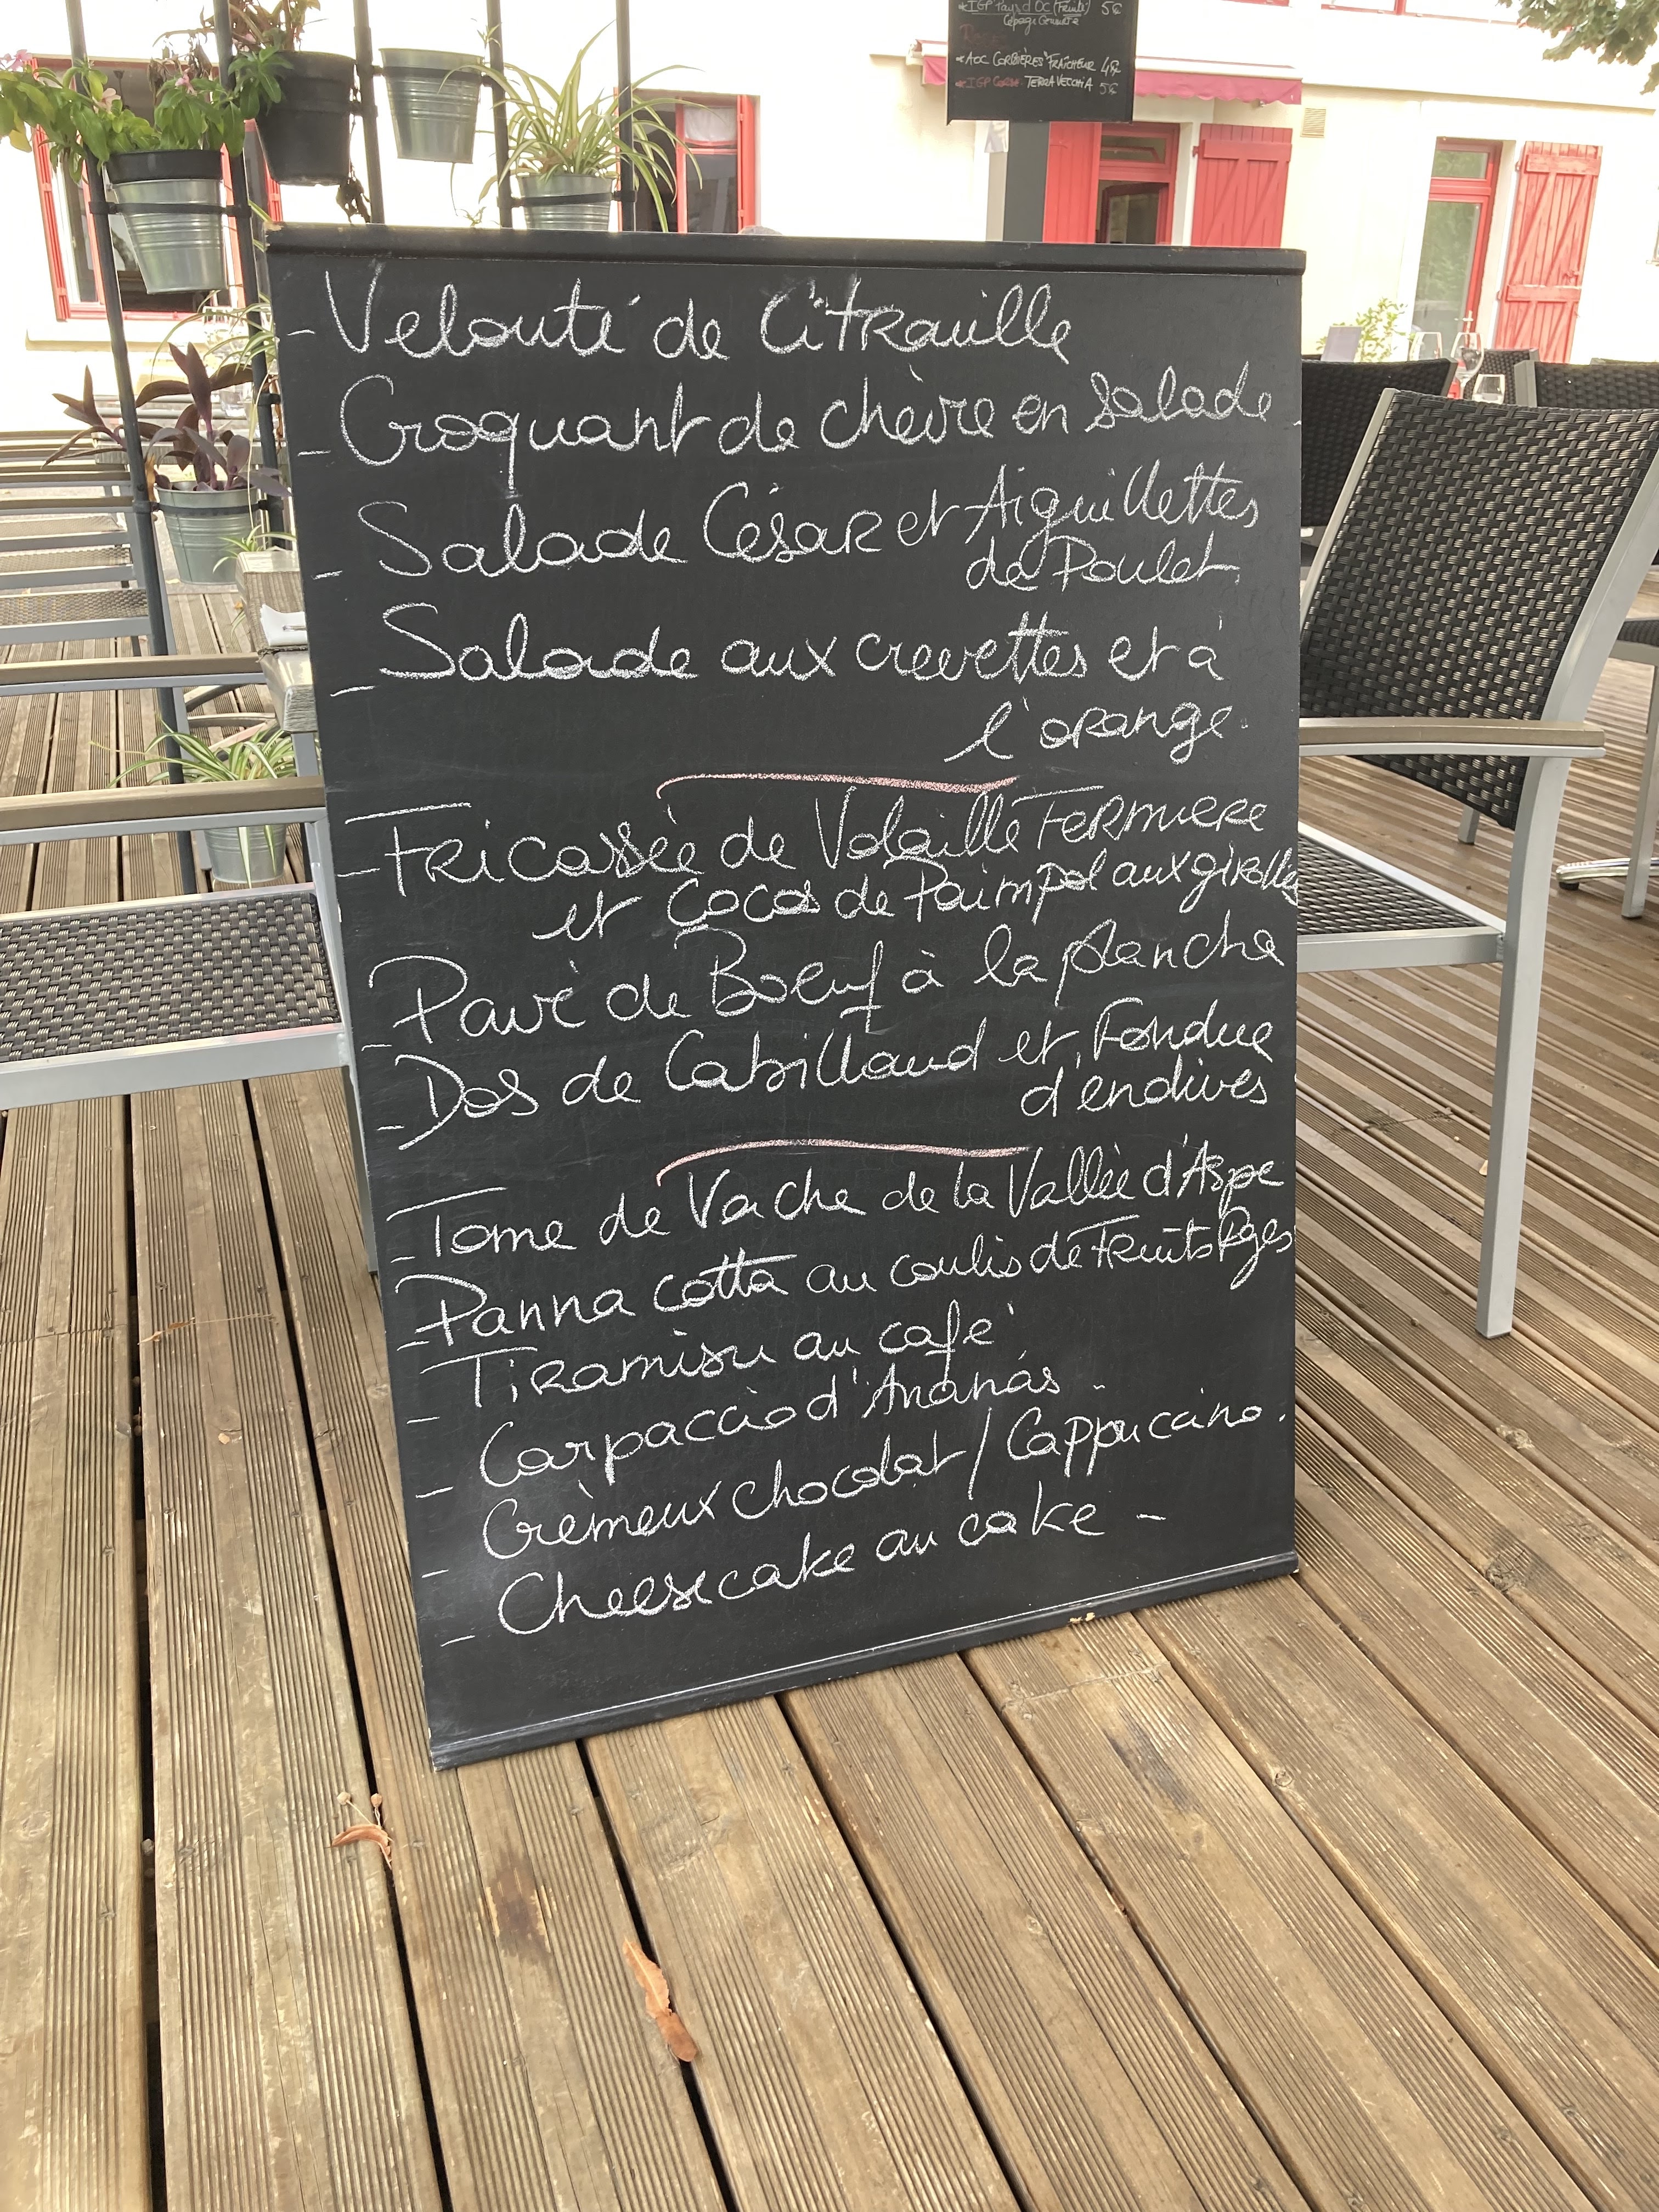 *IGP Pays d'OC (Fruité) 5€
Cépage
*AOC CORBIÈRES "FRAÎCHEUR
*IGP CORSE TERRA VECCHIA 5€
- Velouté de Citrouille
- Croquant de chèvre en salade
- Salade César et Aiguillettes
de Poulet
- Salade aux crevettes et à
l'orange.
- Fricassée de Volaille Fermière
et cocos de Paimpol aux girolles
- Pavé de Boeuf à la plancha
- Dos de Cabillaud et Fondue
d'endives
- Tome de Vache de la Vallée d'Aspe
- Panna cotta au coulis de Fruits Rges
- Tiramisu au café
- Carpaccio d'Ananas -
- Crèmeux chocolat / Cappuccino.
- Cheesecake au cake -